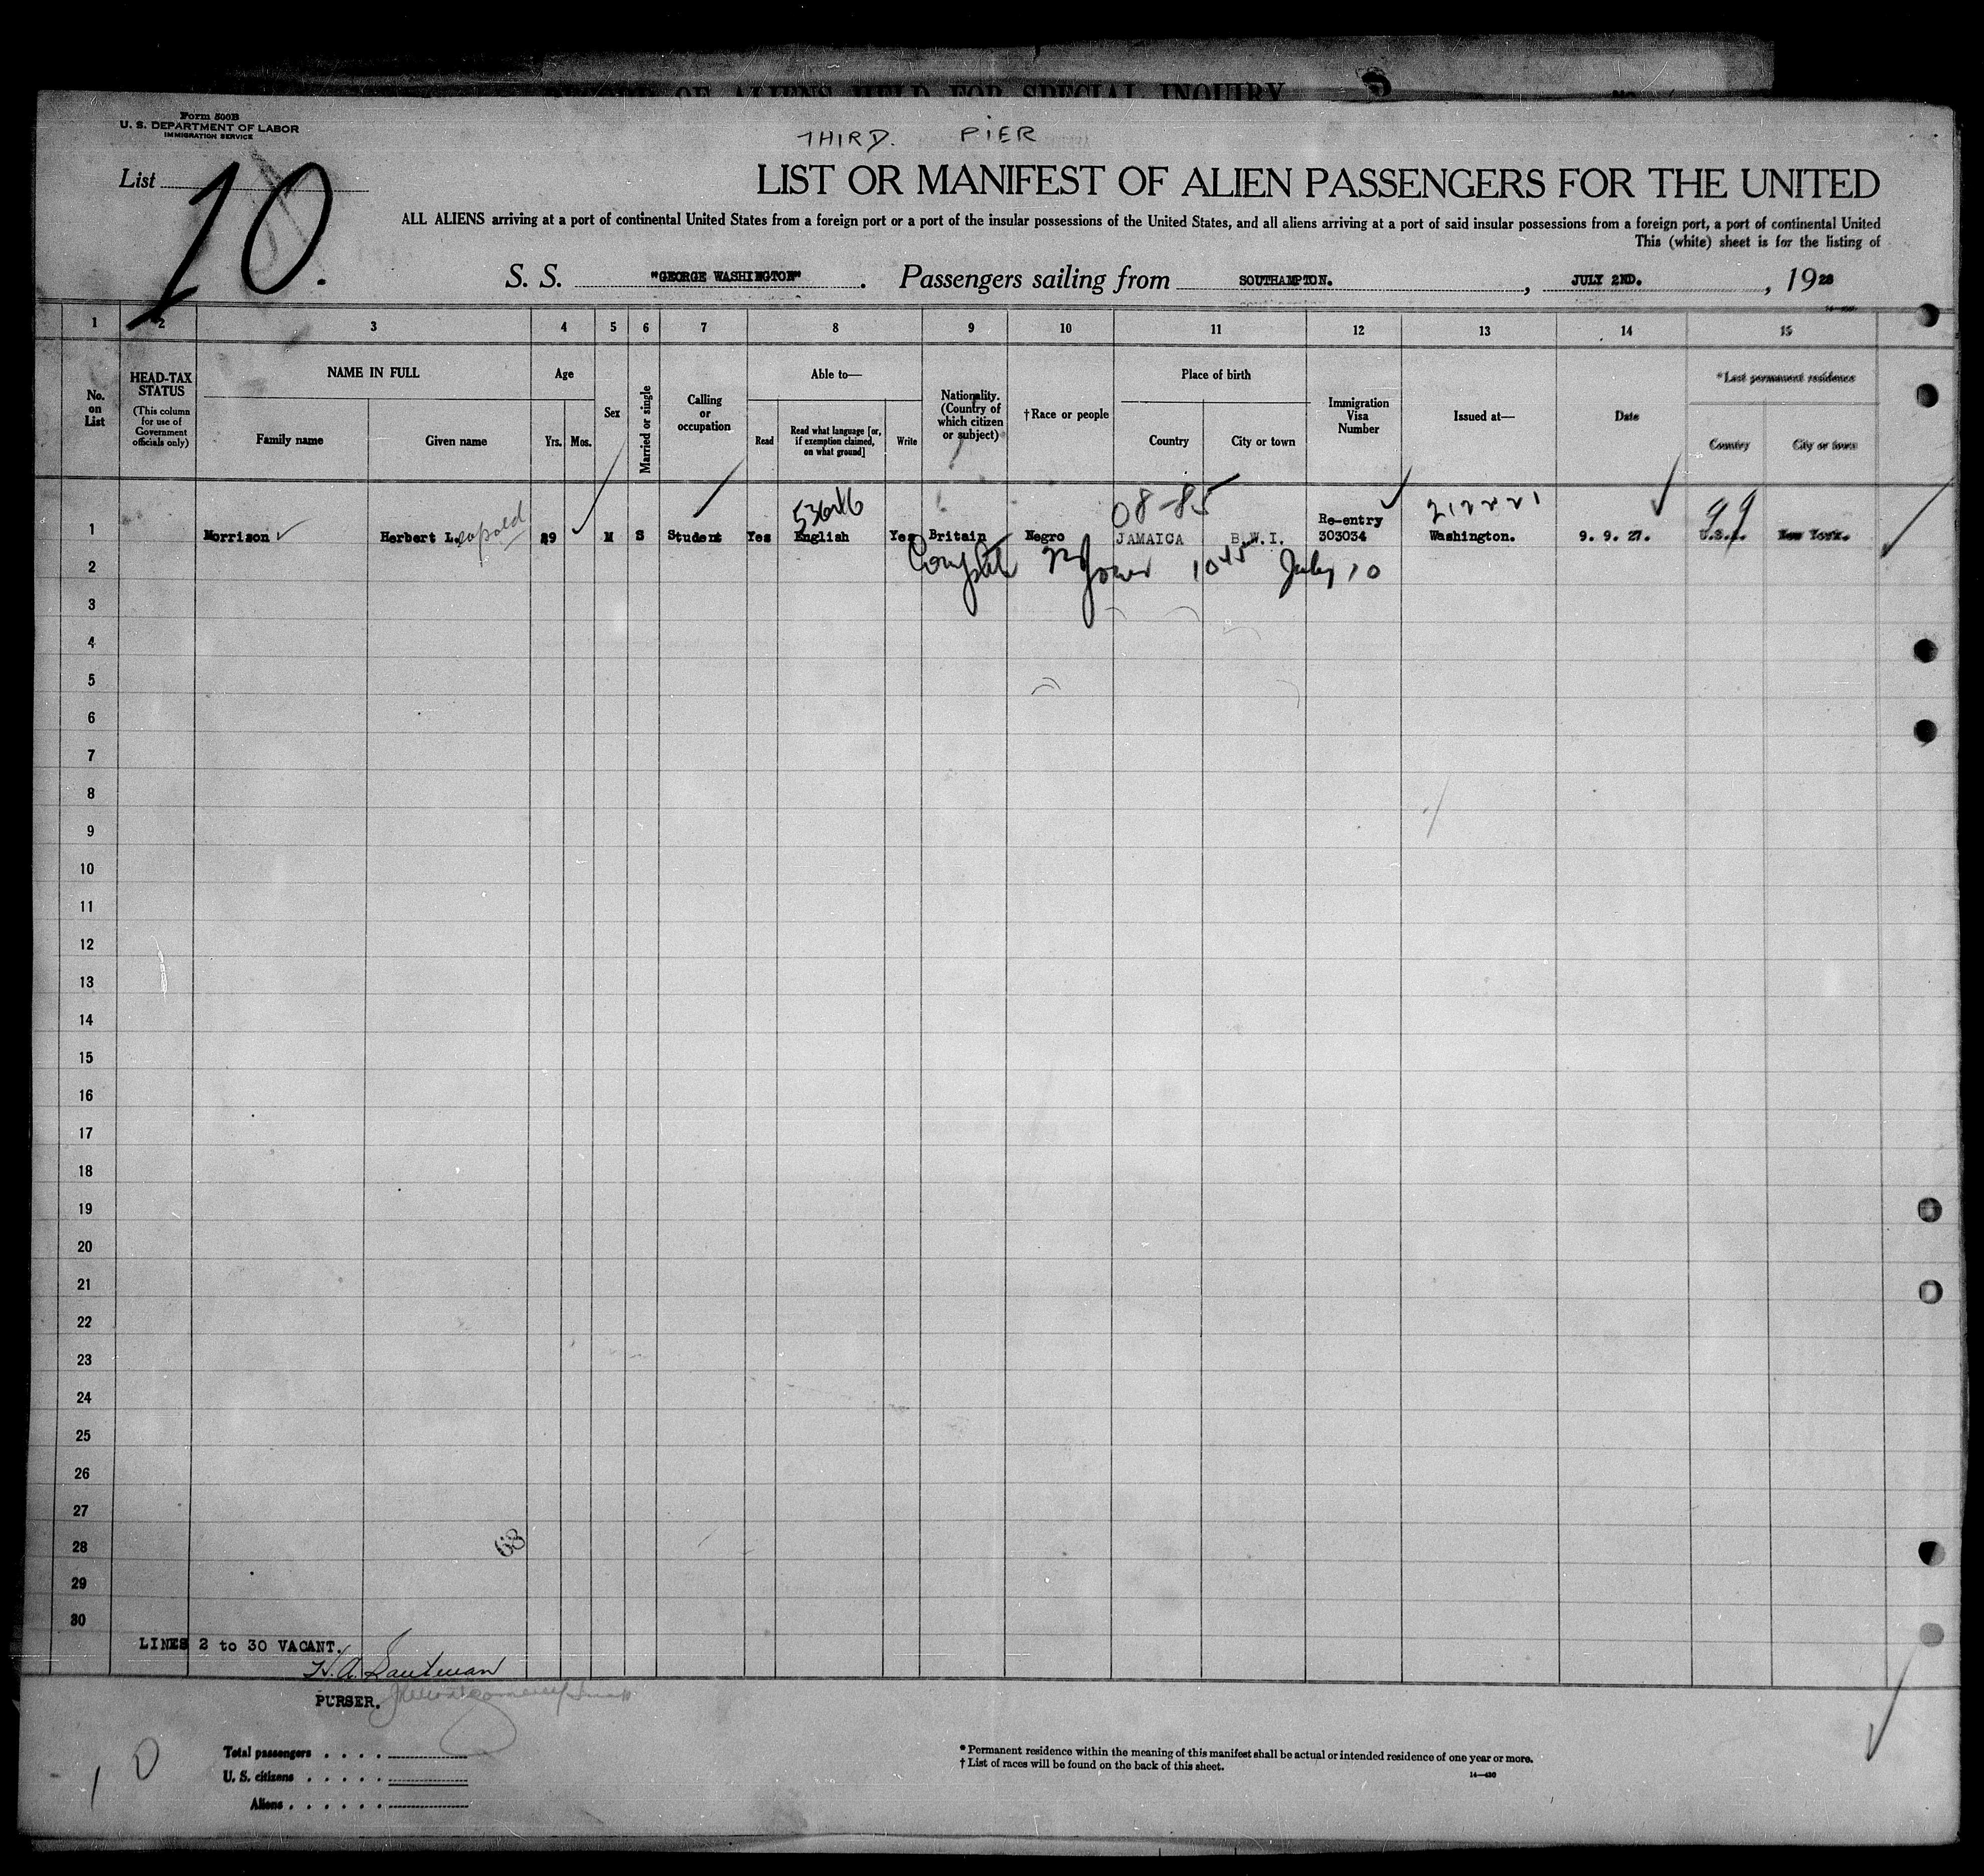 RECORD OF ALIENS HELD FOR SPECIAL INQUIRY
Form 500B
U. S. DEPARTMENT OF LABOR
IMMIGRATION SERVICE
THIRD. PIER
List 10.
LIST OR MANIFEST OF ALIEN PASSENGERS FOR THE UNITED
ALL ALIENS arriving at a port of continental United States from a foreign port or a port of the insular possessions of the United States, and all aliens arriving at a port of said insular possessions from a foreign port, a port of continental United
This (white) sheet is for the listing of
S. S. "GEORGE WASHINGTON". Passengers sailing from SOUTHAMPTON., JULY 2ND., 1928
1 2 3 4 5 6 7 8 9 10 11 12 13 14 15
No. on List
HEAD-TAX STATUS
(This column for use of Government officials only)
NAME IN FULL
Family name
Given name
Age
Yrs. Mos.
Sex
Married or single
Calling or occupation
Able to—
Read
Read what language [or, if exemption claimed, on what ground]
Write
Nationality. (Country of which citizen or subject)
†Race or people
Place of birth
Country
City or town
Immigration Visa Number
Issued at—
Date
*Last permanent residence
Country
City or town
08-85
99
1 Morrison Herbert Leopold 29 M S Student Yes English Yes Britain Negro JAMAICA B.W.I. Re-entry 303034 Washington. 9. 9. 27. U.S.A. New York.
2 1045 July 10
3
4
5
6
7
8
9
10
11
12
13
14
15
16
17
18
19
20
21
22
23
24
25
26
27
28 68
29
30
LINES 2 to 30 VACANT.
PURSER.
Total passengers . . . .
U. S. citizens . . . . .
Aliens . . . . . .
10
* Permanent residence within the meaning of this manifest shall be actual or intended residence of one year or more.
† List of races will be found on the back of this sheet.
14—430